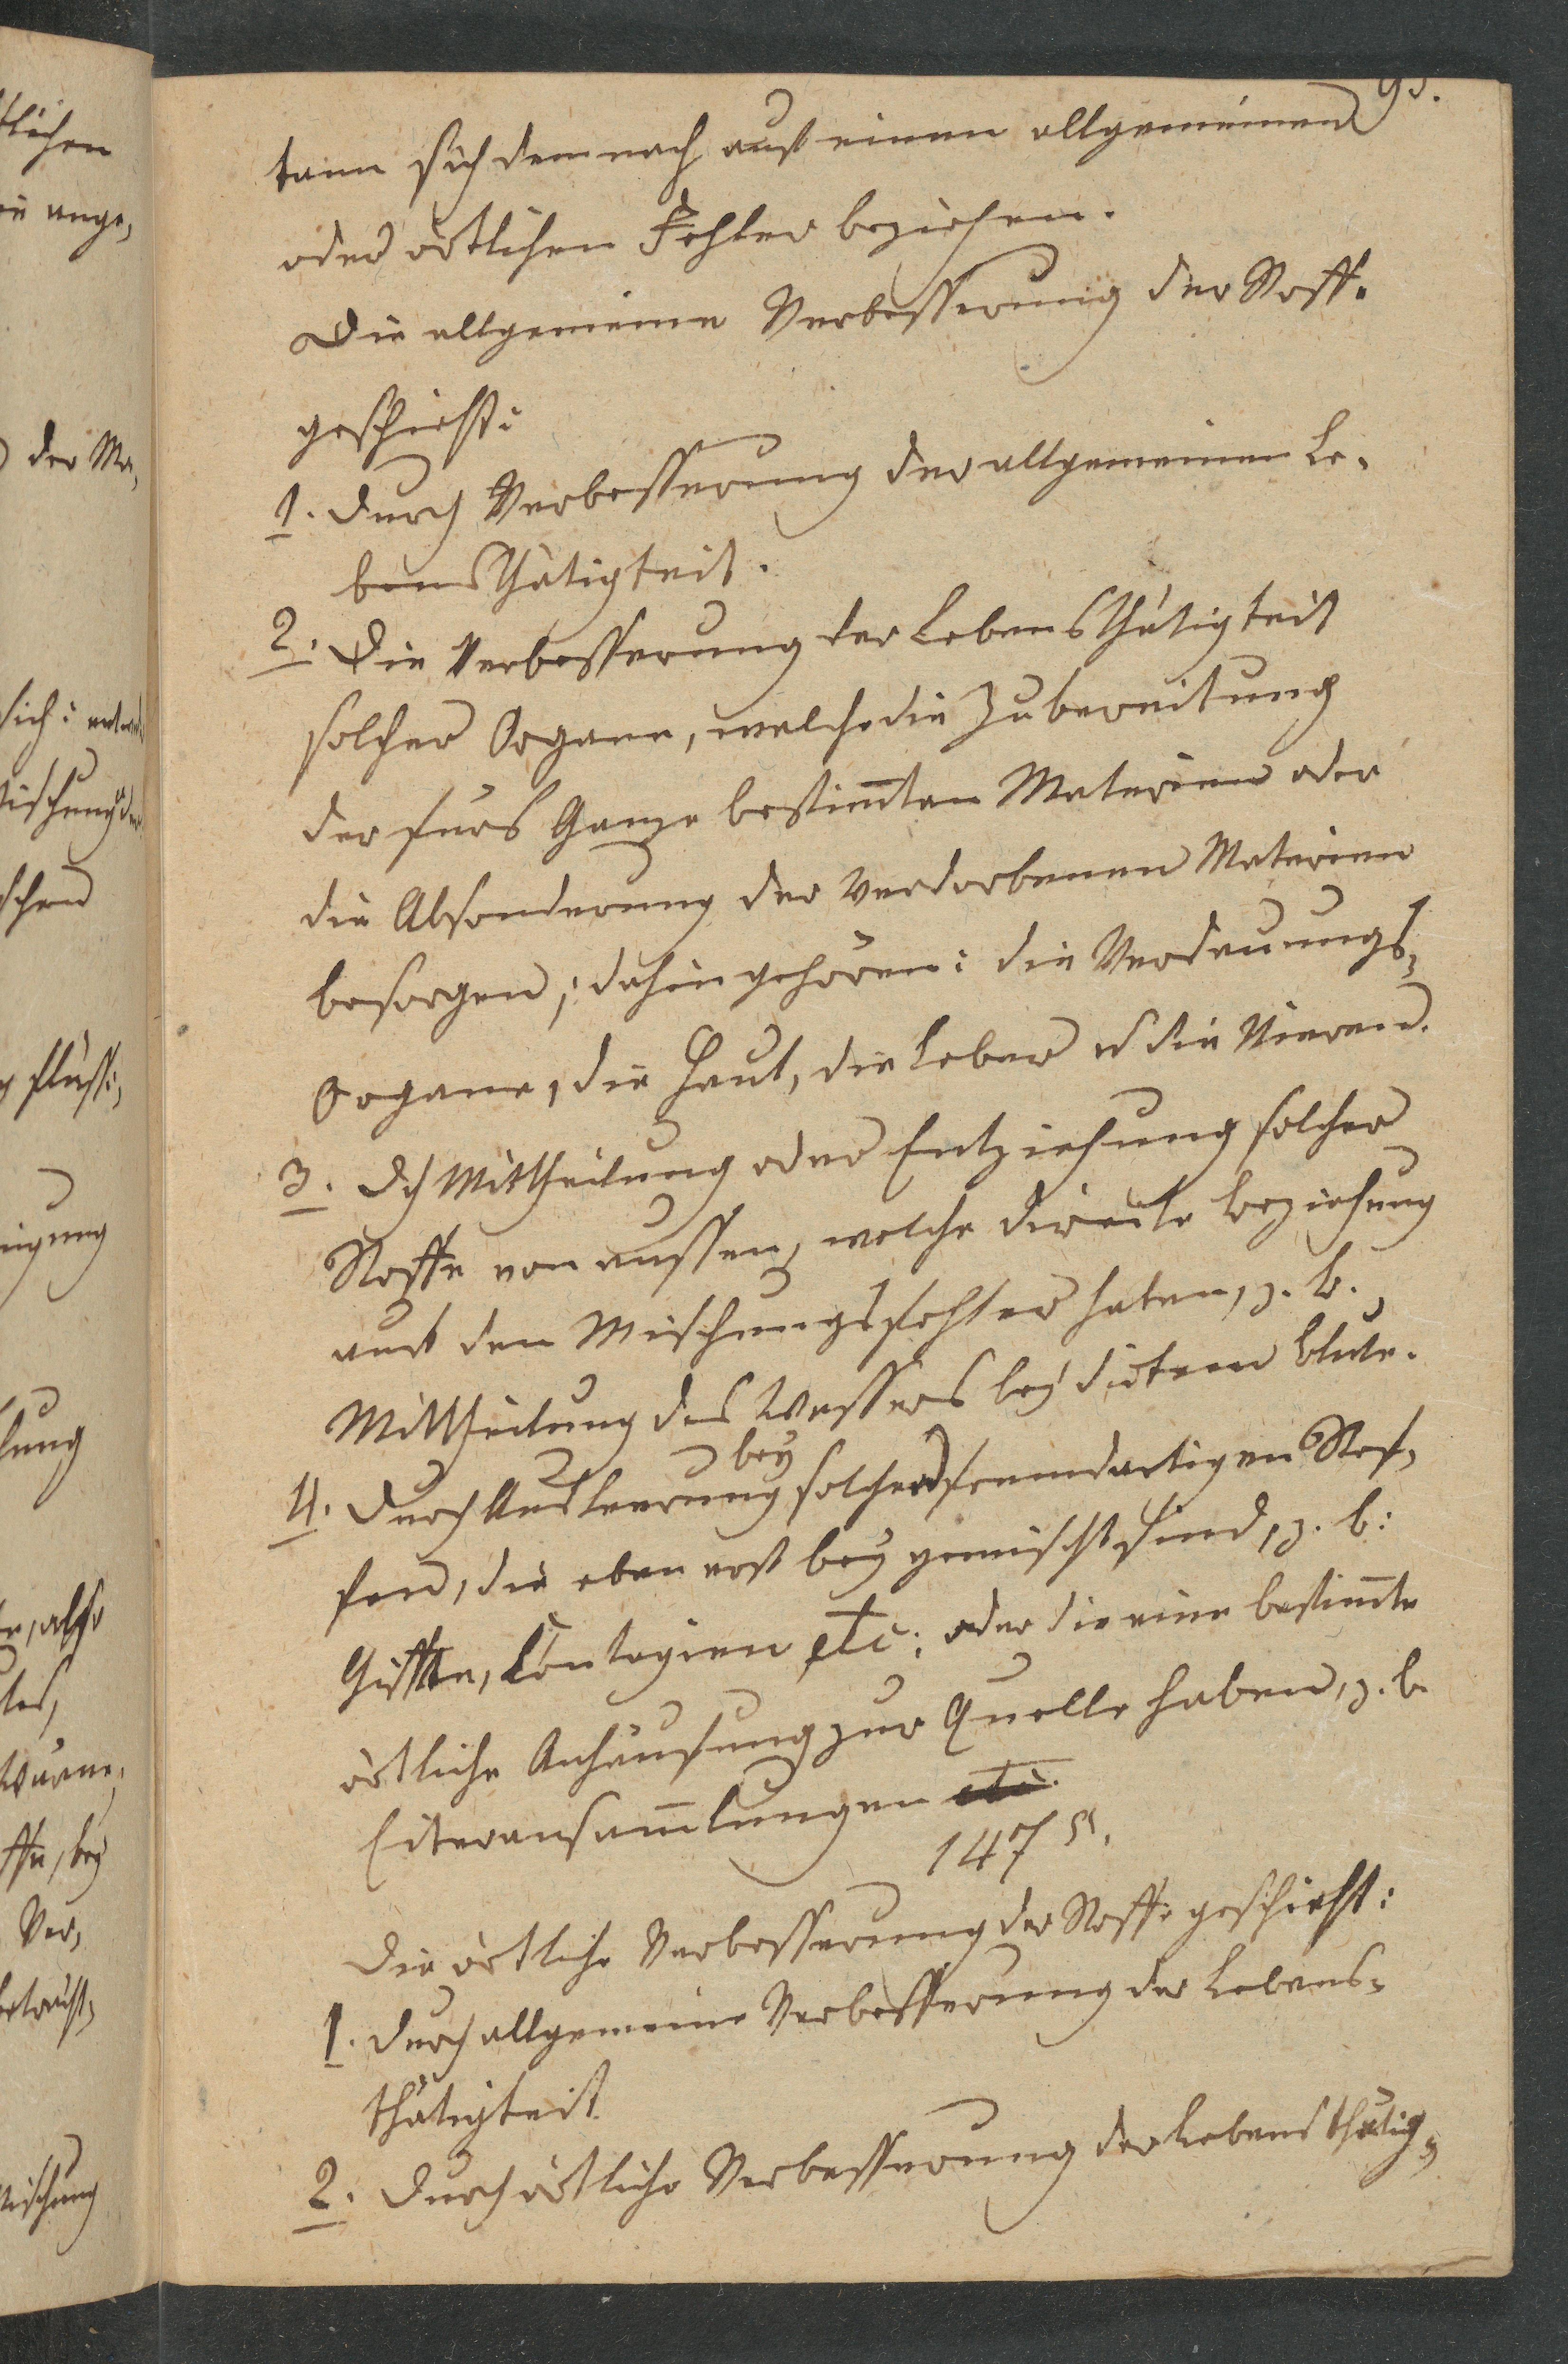 kann sich demnach auf einen allgemeinen
oder örtlichen Fehler beziehen.
Die allgemeine Verbesserung der Stoffe
geschieht:
1. durch Verbesserung der allgemeinen Le-
bensthätigkeit.
2. Die Verbesserung der Lebensthätigkeit
solcher Organe, welche die Zubereitung
der fürs Ganze bestim̅ten Materien oder
die Absonderung der verdorbenen Materien
besorgen; dahin gehören: die Verdauungs-
Organe, die Haut, die Leber u die Nieren.
3. Dch Mittheilung oder Entziehung solcher
Stoffe von aussen, welche directe Beziehung
auf den Mischungsfehler haben, z. B.
Mittheilung des Wassers bey dickem Blute.
bey
4. Durch Ausleerung solcher fremdartigen Stof-
fen, die eben erst bey gemischt sind, z. B:
Gifte, Contagien etc: oder die eine bestim̅te
örtliche Anhäufung zur Quelle haben, z. B.
Eiteransam̅lungen etc.
147 §.
Die örtliche Verbesserung der Stoffe geschieht:
1. durch allgemeine Verbesserung der Lebens-
thätigkeit
2. Durch örtliche Verbesserung der Lebensthätig-